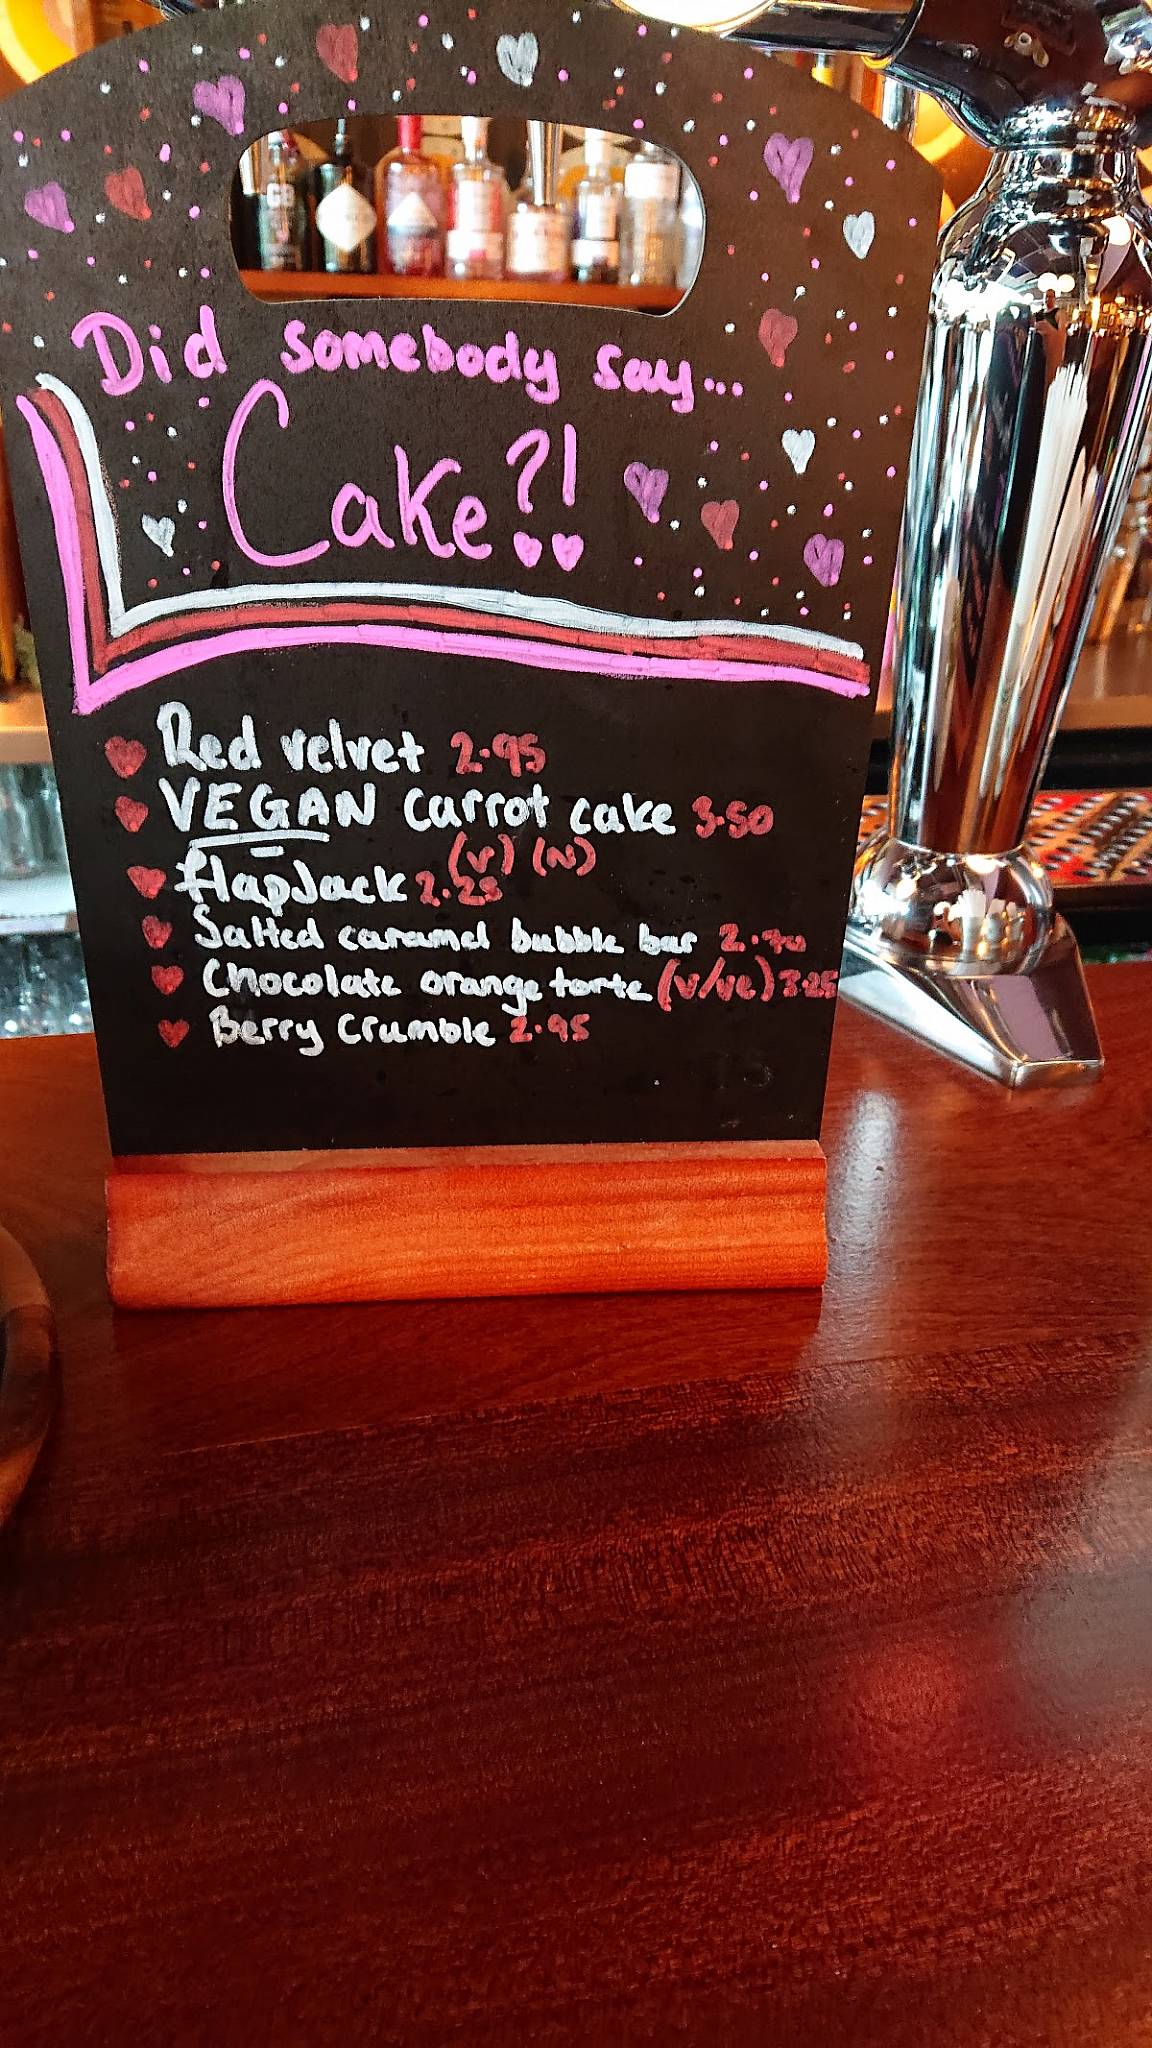 Did somebody say...
Cake?!
Red velvet 2.95
VEGAN carrot cake 3.50
(V) (N)
flapJack 2.25
Salted caramel bubble bar
Chocolate orange torte (v/ve) 3.25
Berry Crumble 2.95